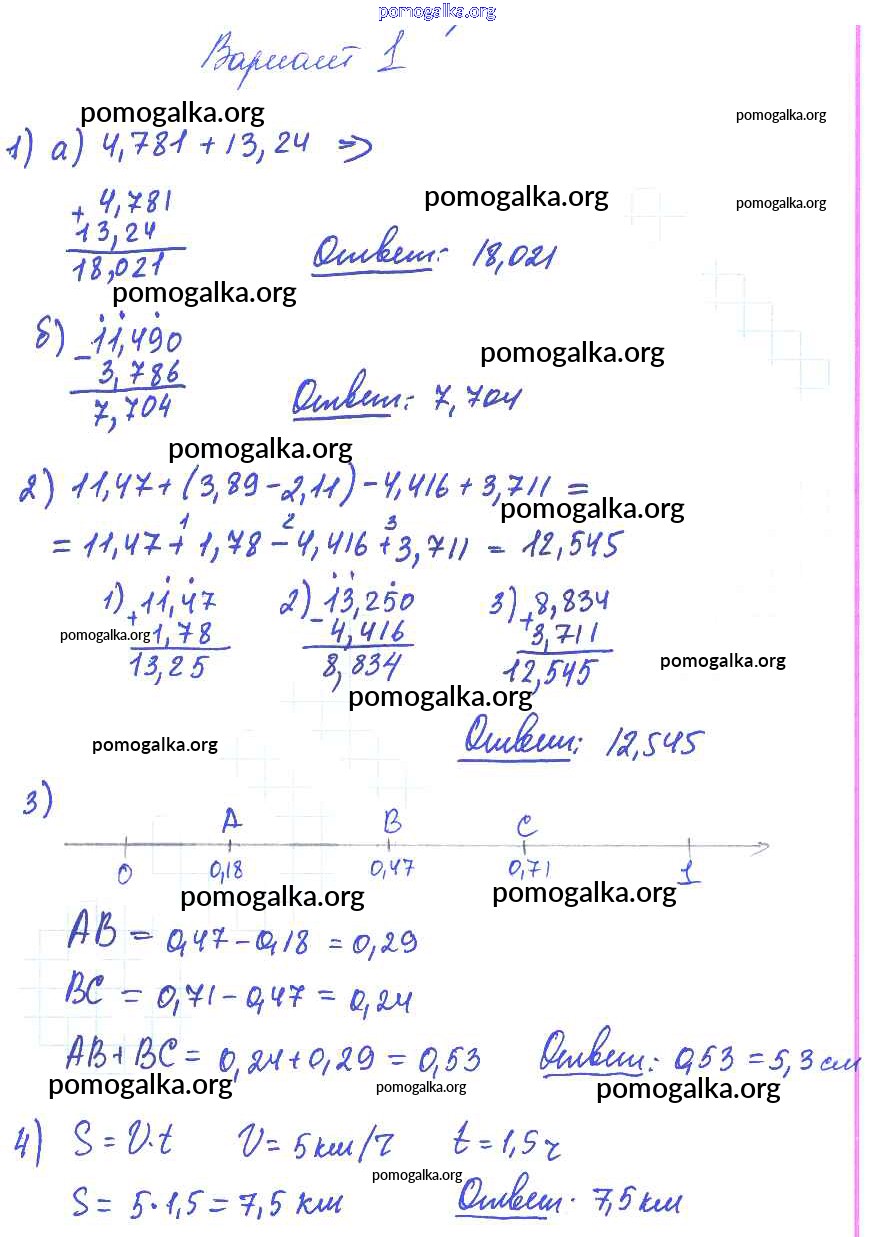 pomogalka.org
Вариант 1
pomogalka.org pomogalka.org
1) а) 4,781 + 13,24 =>
pomogalka.org pomogalka.org
+ 4,781
13,24
18,021 Ответ: 18,021
pomogalka.org
б) - 11,490
pomogalka.org
3,786
7,704 Ответ: 7,704
pomogalka.org
2) 11,47 + (3,89 - 2,11) - 4,416 + 3,711 =
pomogalka.org
1 2 3
= 11,47 + 1,78 - 4,416 + 3,711 = 12,545
1) + 11,47 2) - 13,250 3) + 8,834
pomogalka.org 1,78 4,416 3,711
13,25 8,834 12,545
pomogalka.org
pomogalka.org
pomogalka.org Ответ: 12,545
3)
A B C
0 0,18 0,47 0,71 1
pomogalka.org pomogalka.org
AB = 0,47 - 0,18 = 0,29
BC = 0,71 - 0,47 = 0,24
AB + BC = 0,24 + 0,29 = 0,53 Ответ: 0,53 = 5,3 см
pomogalka.org pomogalka.org pomogalka.org
4) S = V·t V = 5 км/ч t = 1,5 ч
pomogalka.org
S = 5·1,5 = 7,5 км Ответ: 7,5 км